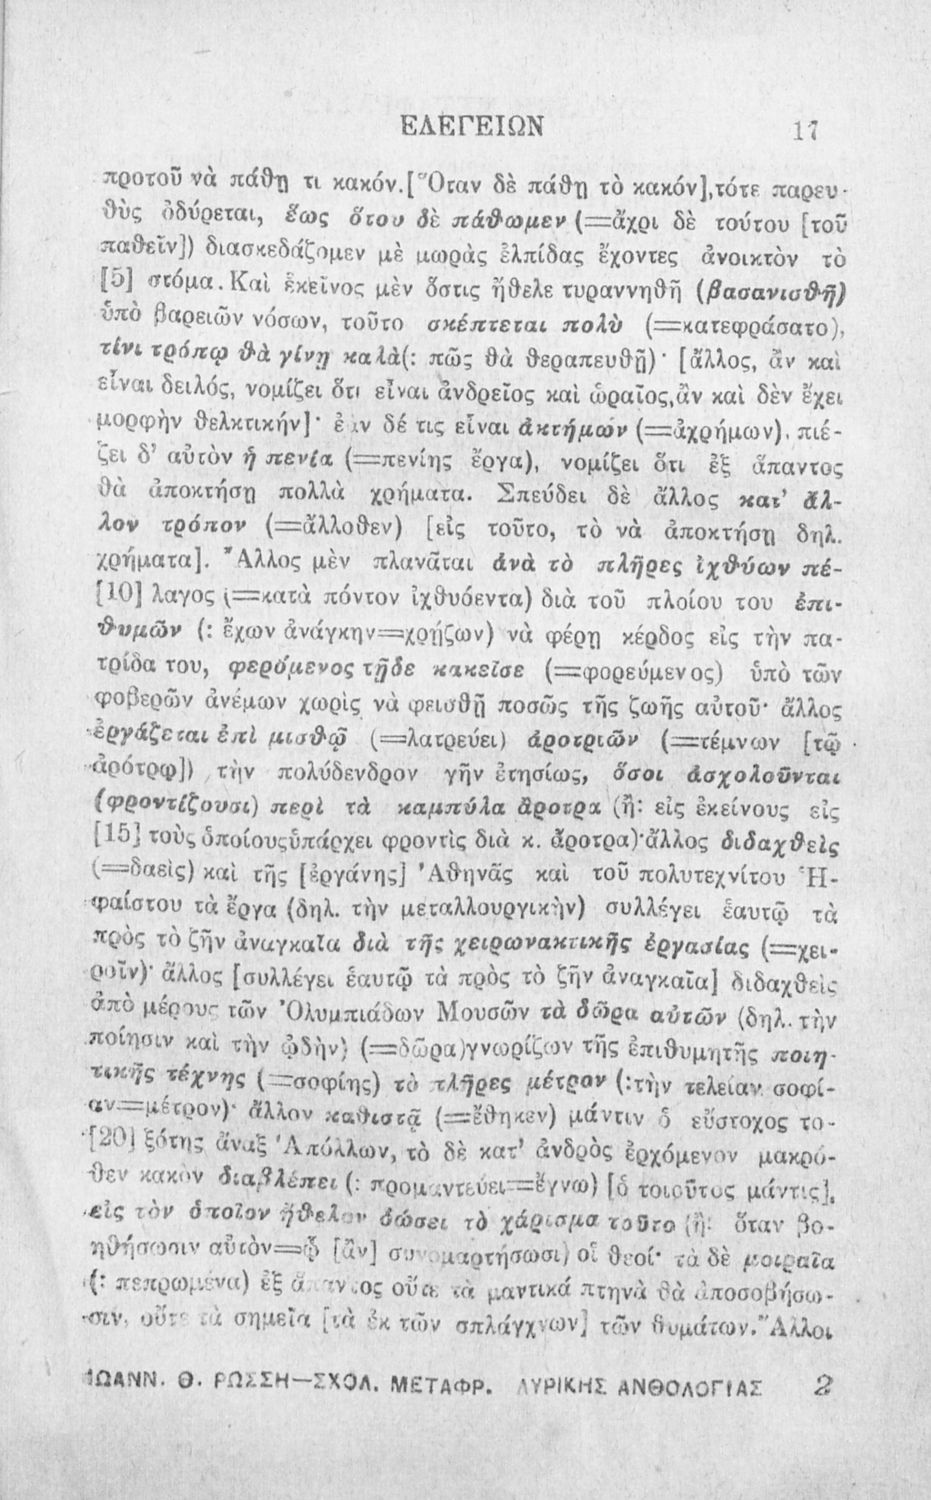 ΕΛΕΓΕΙΩΝ 17
προτοῦ νὰ πάθῃ τι κακόν.[Ὅταν δὲ πάθῃ τὸ κακόν],τότε παρευ-
θὺς ὀδύρεται, ἕως ὅτου δὲ πάθωμεν (=ἄχρι δὲ τούτου [τοῦ
παθεῖν]) διασκεδάζομεν μὲ μωρὰς ἐλπίδας ἔχοντες ἀνοικτὸν τὸ
[5] στόμα. Καὶ ἐκεῖνος μὲν ὅστις ἤθελε τυραννηθῆ (βασανισθῆ)
ὑπὸ βαρειῶν νόσων, τοῦτο σκέπτεται πολὺ (=κατεφράσατο),
τίνι τρόπῳ θὰ γίνῃ καλὰ(: πῶς θὰ θεραπευθῇ)· [ἄλλος, ἂν καὶ
εἶναι δειλός, νομίζει ὅτι εἶναι ἀνδρεῖος καὶ ὡραῖος,ἂν καὶ δὲν ἔχει
μορφὴν θελκτικήν]· ἐὰν δέ τις εἶναι ἀκτήμων (=ἀχρήμων), πιέ-
ζει δ' αὐτὸν ἡ πενία (=πενίης ἔργα), νομίζει ὅτι ἐξ ἅπαντος
θὰ ἀποκτήσῃ πολλὰ χρήματα. Σπεύδει δὲ ἄλλος κατ' ἄλ-
λον τρόπον (=ἄλλοθεν) [εἰς τοῦτο, τὸ νὰ ἀποκτήσῃ δηλ.
χρήματα]. Ἄλλος μὲν πλανᾶται ἀνὰ τὸ πλῆρες ἰχθύων πέ-
[10] λαγος (=κατὰ πόντον ἰχθυόεντα) διὰ τοῦ πλοίου του ἐπι-
θυμῶν (: ἔχων ἀνάγκην=χρῄζων) νὰ φέρῃ κέρδος εἰς τὴν πα-
τρίδα του, φερόμενος τῇδε κακεῖσε (=φορεύμενος) ὑπὸ τῶν
φοβερῶν ἀνέμων χωρὶς νὰ φεισθῇ ποσῶς τῆς ζωῆς αὐτοῦ· ἄλλος
ἐργάζεται ἐπὶ μισθῷ (=λατρεύει) ἀροτριῶν (=τέμνων [τῷ
ἀρότρῳ]) τὴν πολύδενδρον γῆν ἐτησίως, ὅσοι ἀσχολοῦνται
(φροντίζουσι) περὶ τὰ καμπύλα ἄροτρα (ἢ: εἰς ἐκείνους εἰς
[15] τοὺς ὁποίουςὑπάρχει φροντὶς διὰ κ. ἄροτρα)·ἄλλος διδαχθεὶς
(=δαεὶς) καὶ τῆς [ἐργάνης] Ἀθηνᾶς καὶ τοῦ πολυτεχνίτου Ἡ-
φαίστου τὰ ἔργα (δηλ. τὴν μεταλλουργικὴν) συλλέγει ἑαυτῷ τὰ
πρὸς τὸ ζῆν ἀναγκαῖα διὰ τῆς χειρωνακτικῆς ἐργασίας (=χει-
ροῖν)· ἄλλος [συλλέγει ἑαυτῷ τὰ πρὸς τὸ ζῆν ἀναγκαῖα] διδαχθεὶς
ἀπὸ μέρους τῶν Ὀλυμπιάδων Μουσῶν τὰ δῶρα αὐτῶν (δηλ. τὴν
ποίησιν καὶ τὴν ᾠδὴν) (=δῶρα)γνωρίζων τῆς ἐπιθυμητῆς ποιη-
τικῆς τέχνης (=σοφίης) τὸ πλῆρες μέτρον (:τὴν τελείαν σοφί-
αν=μέτρον)· ἄλλον καθιστᾷ (=ἔθηκεν) μάντιν ὁ εὔστοχος το-
[20] ξότης ἄναξ Ἀπόλλων, τὸ δὲ κατ' ἀνδρὸς ἐρχόμενον μακρό-
θεν κακὸν διαβλέπει (: προμαντεύει=ἔγνω) [ὁ τοιοῦτος μάντις],
εἰς τὸν ὁποῖον ἤθελον δώσει τὸ χάρισμα τοῦτο (ἢ: ὅταν βο-
ηθήσωσιν αὐτὸν=ᾧ [ἂν] συνομαρτήσωσι) οἱ θεοί· τὰ δὲ μοιραῖα
(: πεπρωμένα) ἐξ ἅπαντος οὔτε τὰ μαντικά πτηνὰ θὰ ἀποσοβήσω-
σιν, οὔτε τὰ σημεῖα [τὰ ἐκ τῶν σπλάγχνων] τῶν θυμάτων. Ἄλλοι
ΙΩΑΝΝ. Θ. ΡΩΣΣΗ—ΣΧΟΛ. ΜΕΤΑΦΡ. ΛΥΡΙΚΗΣ ΑΝΘΟΛΟΓΙΑΣ 2